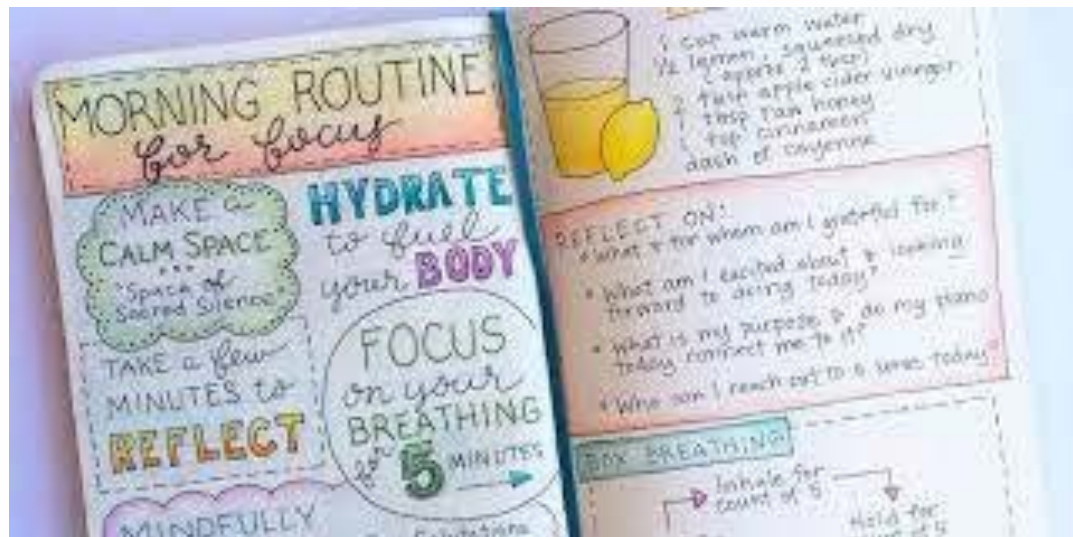 MORNING ROUTINE
for focus
MAKE a
CALM SPACE
"Space of
Sacred Silence"
TAKE a few
MINUTES to
REFLECT
MINDFULLY
HYDRATE
to fuel
your BODY
FOCUS
on your
BREATHING
for 5 MINUTES
Salutations
1 cup warm water
1/2 lemon, squeezed dry
(approx 2 tbsp)
2 tbsp apple cider vinegar
1 tbsp raw honey
1 tsp cinnamon
dash of cayenne
REFLECT ON:
• What & for whom am I grateful for?
• What am I excited about & looking
forward to doing today?
• What is my purpose & do my plans
today connect me to it?
• Who can I reach out to & today?
BOX BREATHING
Inhale for
count of 5
Hold for
count of 5